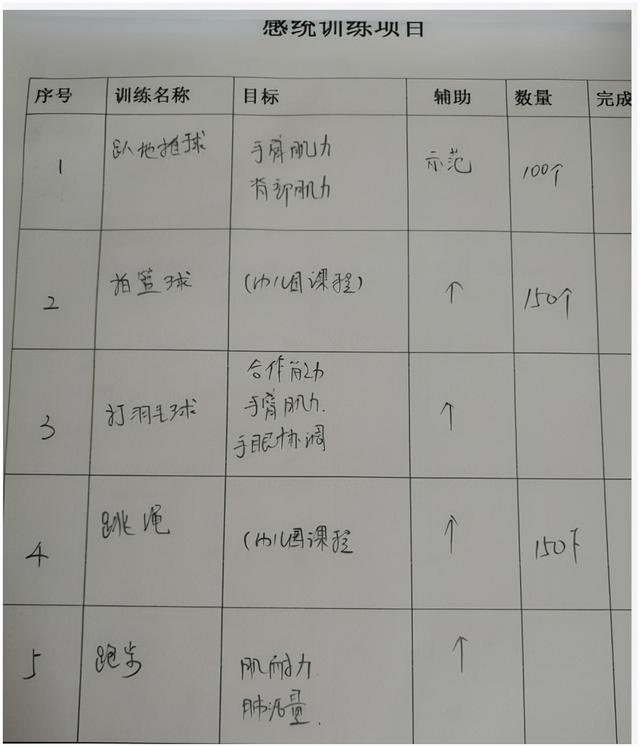 感统训练项目
序号 训练名称 目标 辅助 数量 完成
1 趴地推球 手臂肌力 示范 100个
背部肌力
2 拍篮球 (幼儿园课程) ↑ 150个
合作能力
3 打羽毛球 手臂肌力. ↑
手眼协调
4 跳绳 (幼儿园课程 ↑ 150下
5 跑步 肌耐力 ↑
肺活量.